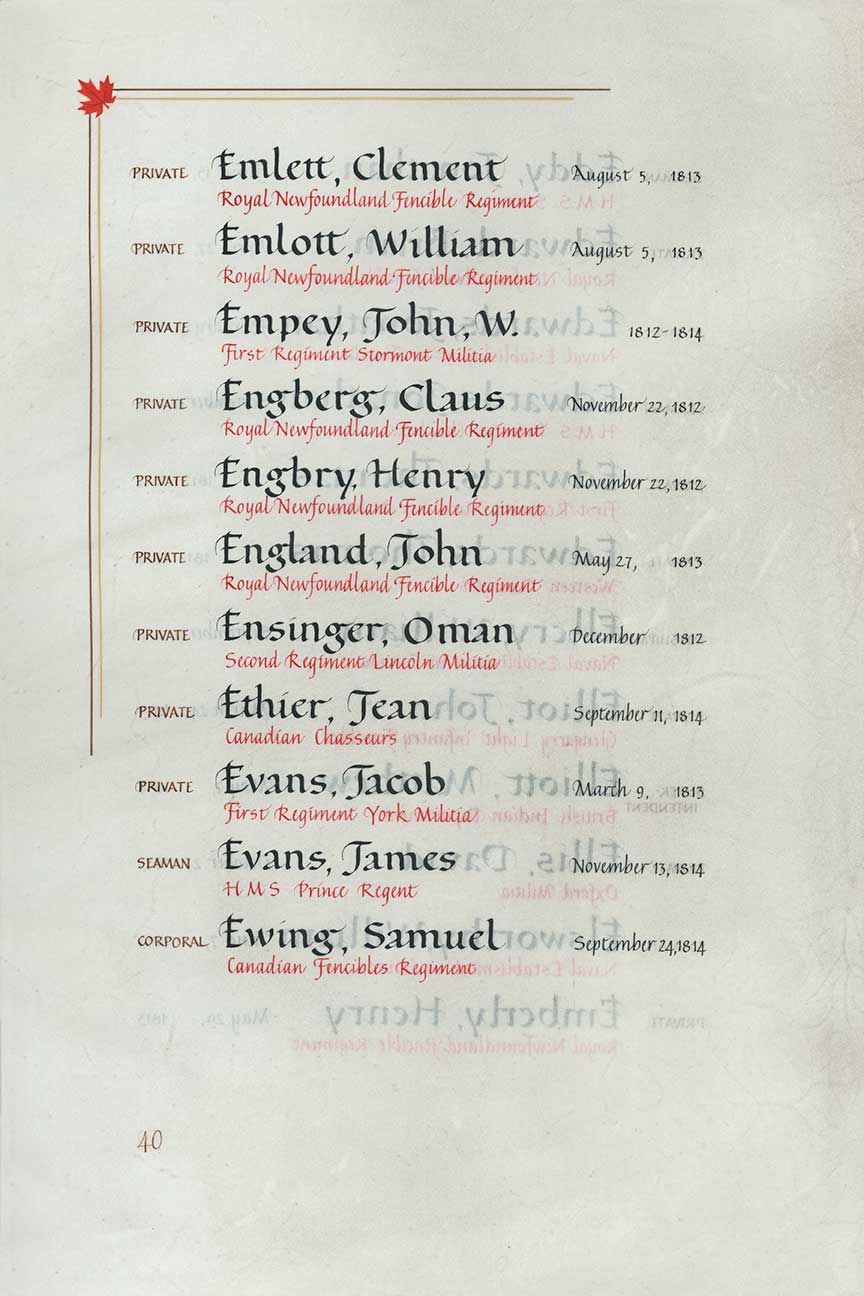 PRIVATE Emlett, Clement August 5, 1813
Royal Newfoundland Fencible Regiment
PRIVATE Emlott, William August 5, 1813
Royal Newfoundland Fencible Regiment
PRIVATE Empey, John, W. 1812-1814
First Regiment Stormont Militia
PRIVATE Engberg, Claus November 22, 1812
Royal Newfoundland Fencible Regiment
PRIVATE Engbry, Henry November 22, 1812
Royal Newfoundland Fencible Regiment
PRIVATE England, John May 27, 1813
Royal Newfoundland Fencible Regiment
PRIVATE Ensinger, Oman December 1812
Second Regiment Lincoln Militia
PRIVATE Ethier, Jean September 11, 1814
Canadian Chasseurs
PRIVATE Evans, Jacob March 9, 1813
First Regiment York Militia
SEAMAN Evans, James November 13, 1814
HMS Prince Regent
CORPORAL Ewing, Samuel September 24, 1814
Canadian Fencibles Regiment
40